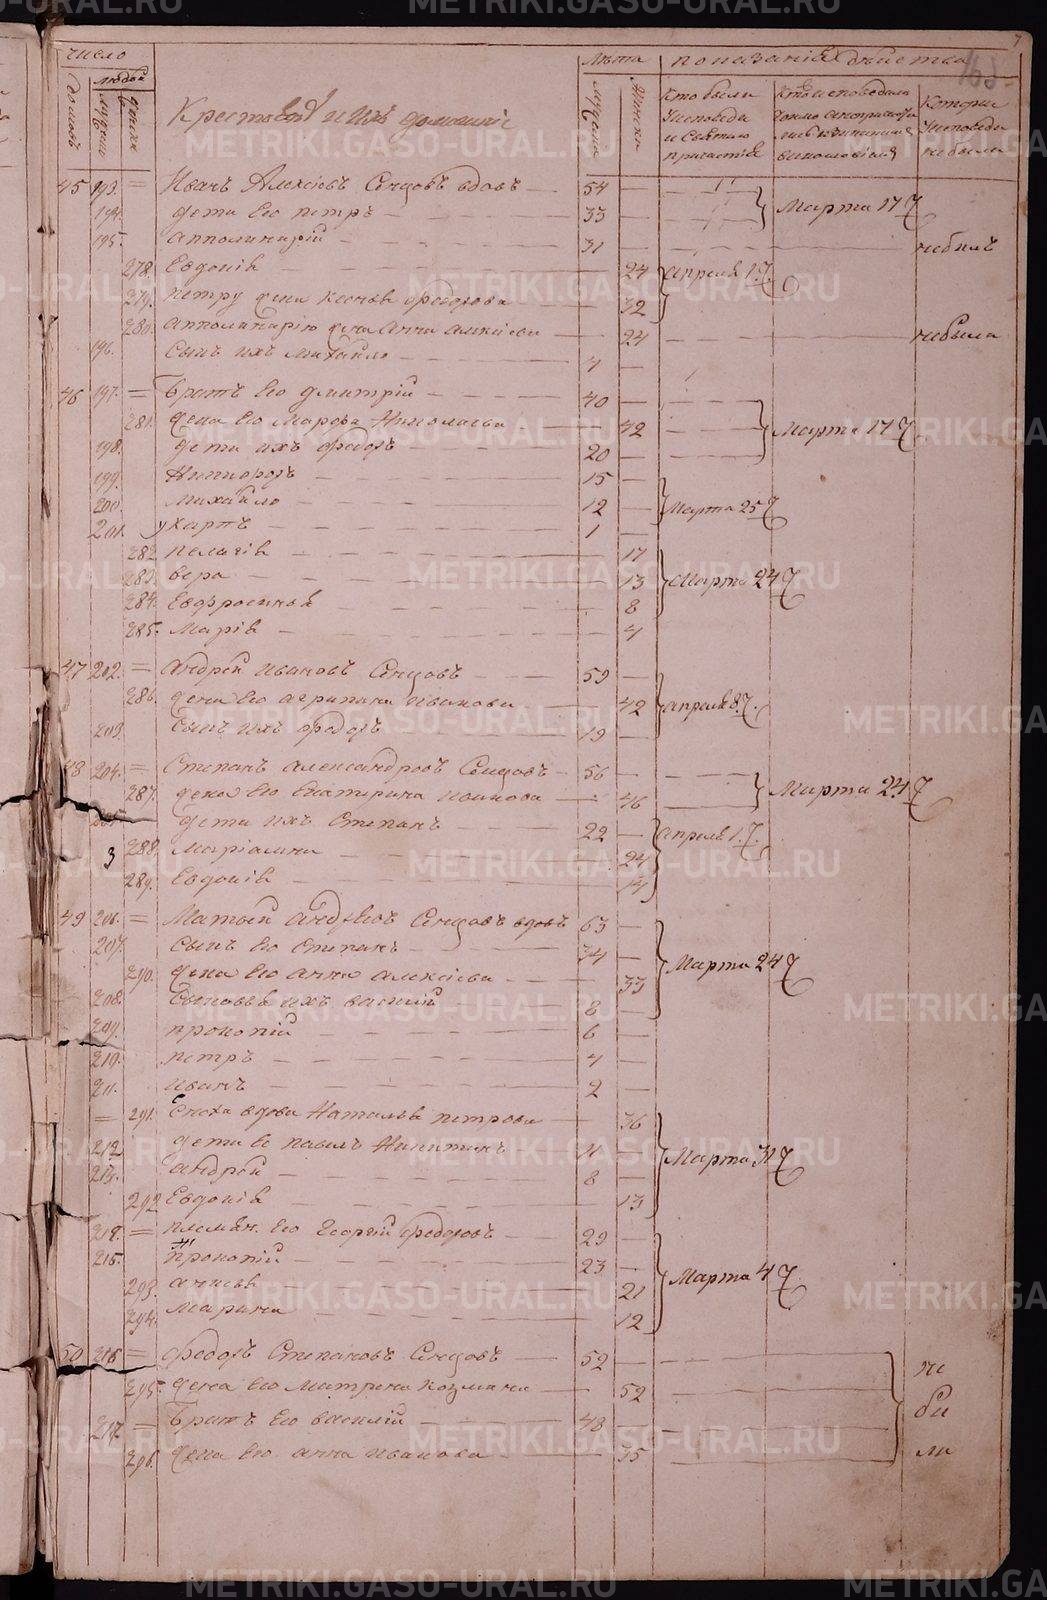 число
лѣта показанія дѣйства
людей
домовъ мужеска женска
Крестьянѣ и ихъ домашніе
мужеска женска
Кто были у исповѣди и Святаго причастія
Которы у исповѣди не были
45 193. = Иванъ Алексѣевъ Сенцовъ вдовъ 54
194. дети его петръ 33 Марта 17
195. апполинарій 31 небылъ
278. Евдокія 24 апреля 1.
279. петру жена Ксенья Ѳеодорова 32
280. апполинарію жена Анна алексіева 24 небыла
196. сынъ ихъ михайло 4
46 197. = Братъ его дмитрій 40
281. жена его Марѳа Николаева 42 Марта 17
198. дети ихъ Ѳеодоръ 20
199. Никифоръ 15
200. михайло 12 Марта 25
201. Уваръ 1
282. пелагія 17
283. вера 13 Марта 24
284. Евфросинья 8
285. Марія 4
47 202. = андрей ивановъ Сенцовъ 59
286. жена его агрипина иванова 42 апреля 8
203. сынъ ихъ Ѳеодоръ 19
48 204. = Степанъ александровъ Сенцовъ 56
287. жена его Екатирина иванова 46 Марта 24
205. дети ихъ Степанъ 22 апреля 1.
3 288. Маріамна 24
289. Евдокія 14
49 206. = Матвей андреевъ Сенцовъ вдовъ 63
207. сынъ его Степанъ 34
290. жена его анна алексіева 33 Марта 24
208. сыновья ихъ василій 8
209. прокопій 6
210. петръ 4
211. иванъ 2
= 291. Сноха вдова Наталья петрова 36
212. дети ее павилъ Никитинъ 11 Марта 31
213. андрей 8
292. Евдокія 13
214. = племян. его Георгій Ѳеодоровъ 29
215. прокопій 23
293. анисья 21 Марта 4
294. Марина 12
50 216. = Ѳеодоръ Степановъ Сенцовъ 52 не
295. жена его Матрена козмина 52 бы
217. = Братъ его василій 48
296. жена его анна иванова 35 ли
METRIKI.GASO-URAL.RU